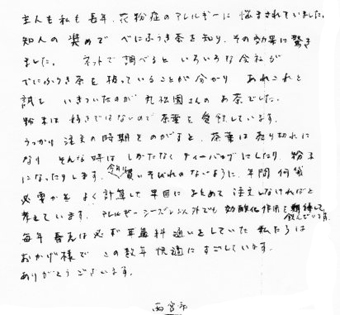 主人も私も長年、花粉症のアレルギーに悩まされていました。
知人の奨めで べにふうき茶を知り、その効果に驚き
ました。 ネットで調べると いろいろな会社が
べにふうき茶を扱っていることが分かり あれこれと
試し いきついたのが 丸松園さんの お茶でした。
粉末は 好きではないので 茶葉を 愛飲しています。
うっかり 注文の時期を のがすと、茶葉は 売り切れに
なり そんな時は しかたなく ティーバッグにしたり、粉末
になったりします。今年は買いそびれのないように、年間 何袋
必要かを よく計算して 早目に まとめて 注文しなければと
考えています。アレルギーシーズン以外でも 抗酸化作用を期待して飲んでいます
毎年 春先は必ず 耳鼻科通いをしていた 私たちは
おかげ様で この数年 快適に すごしています。
ありがとうございます。
西宮市